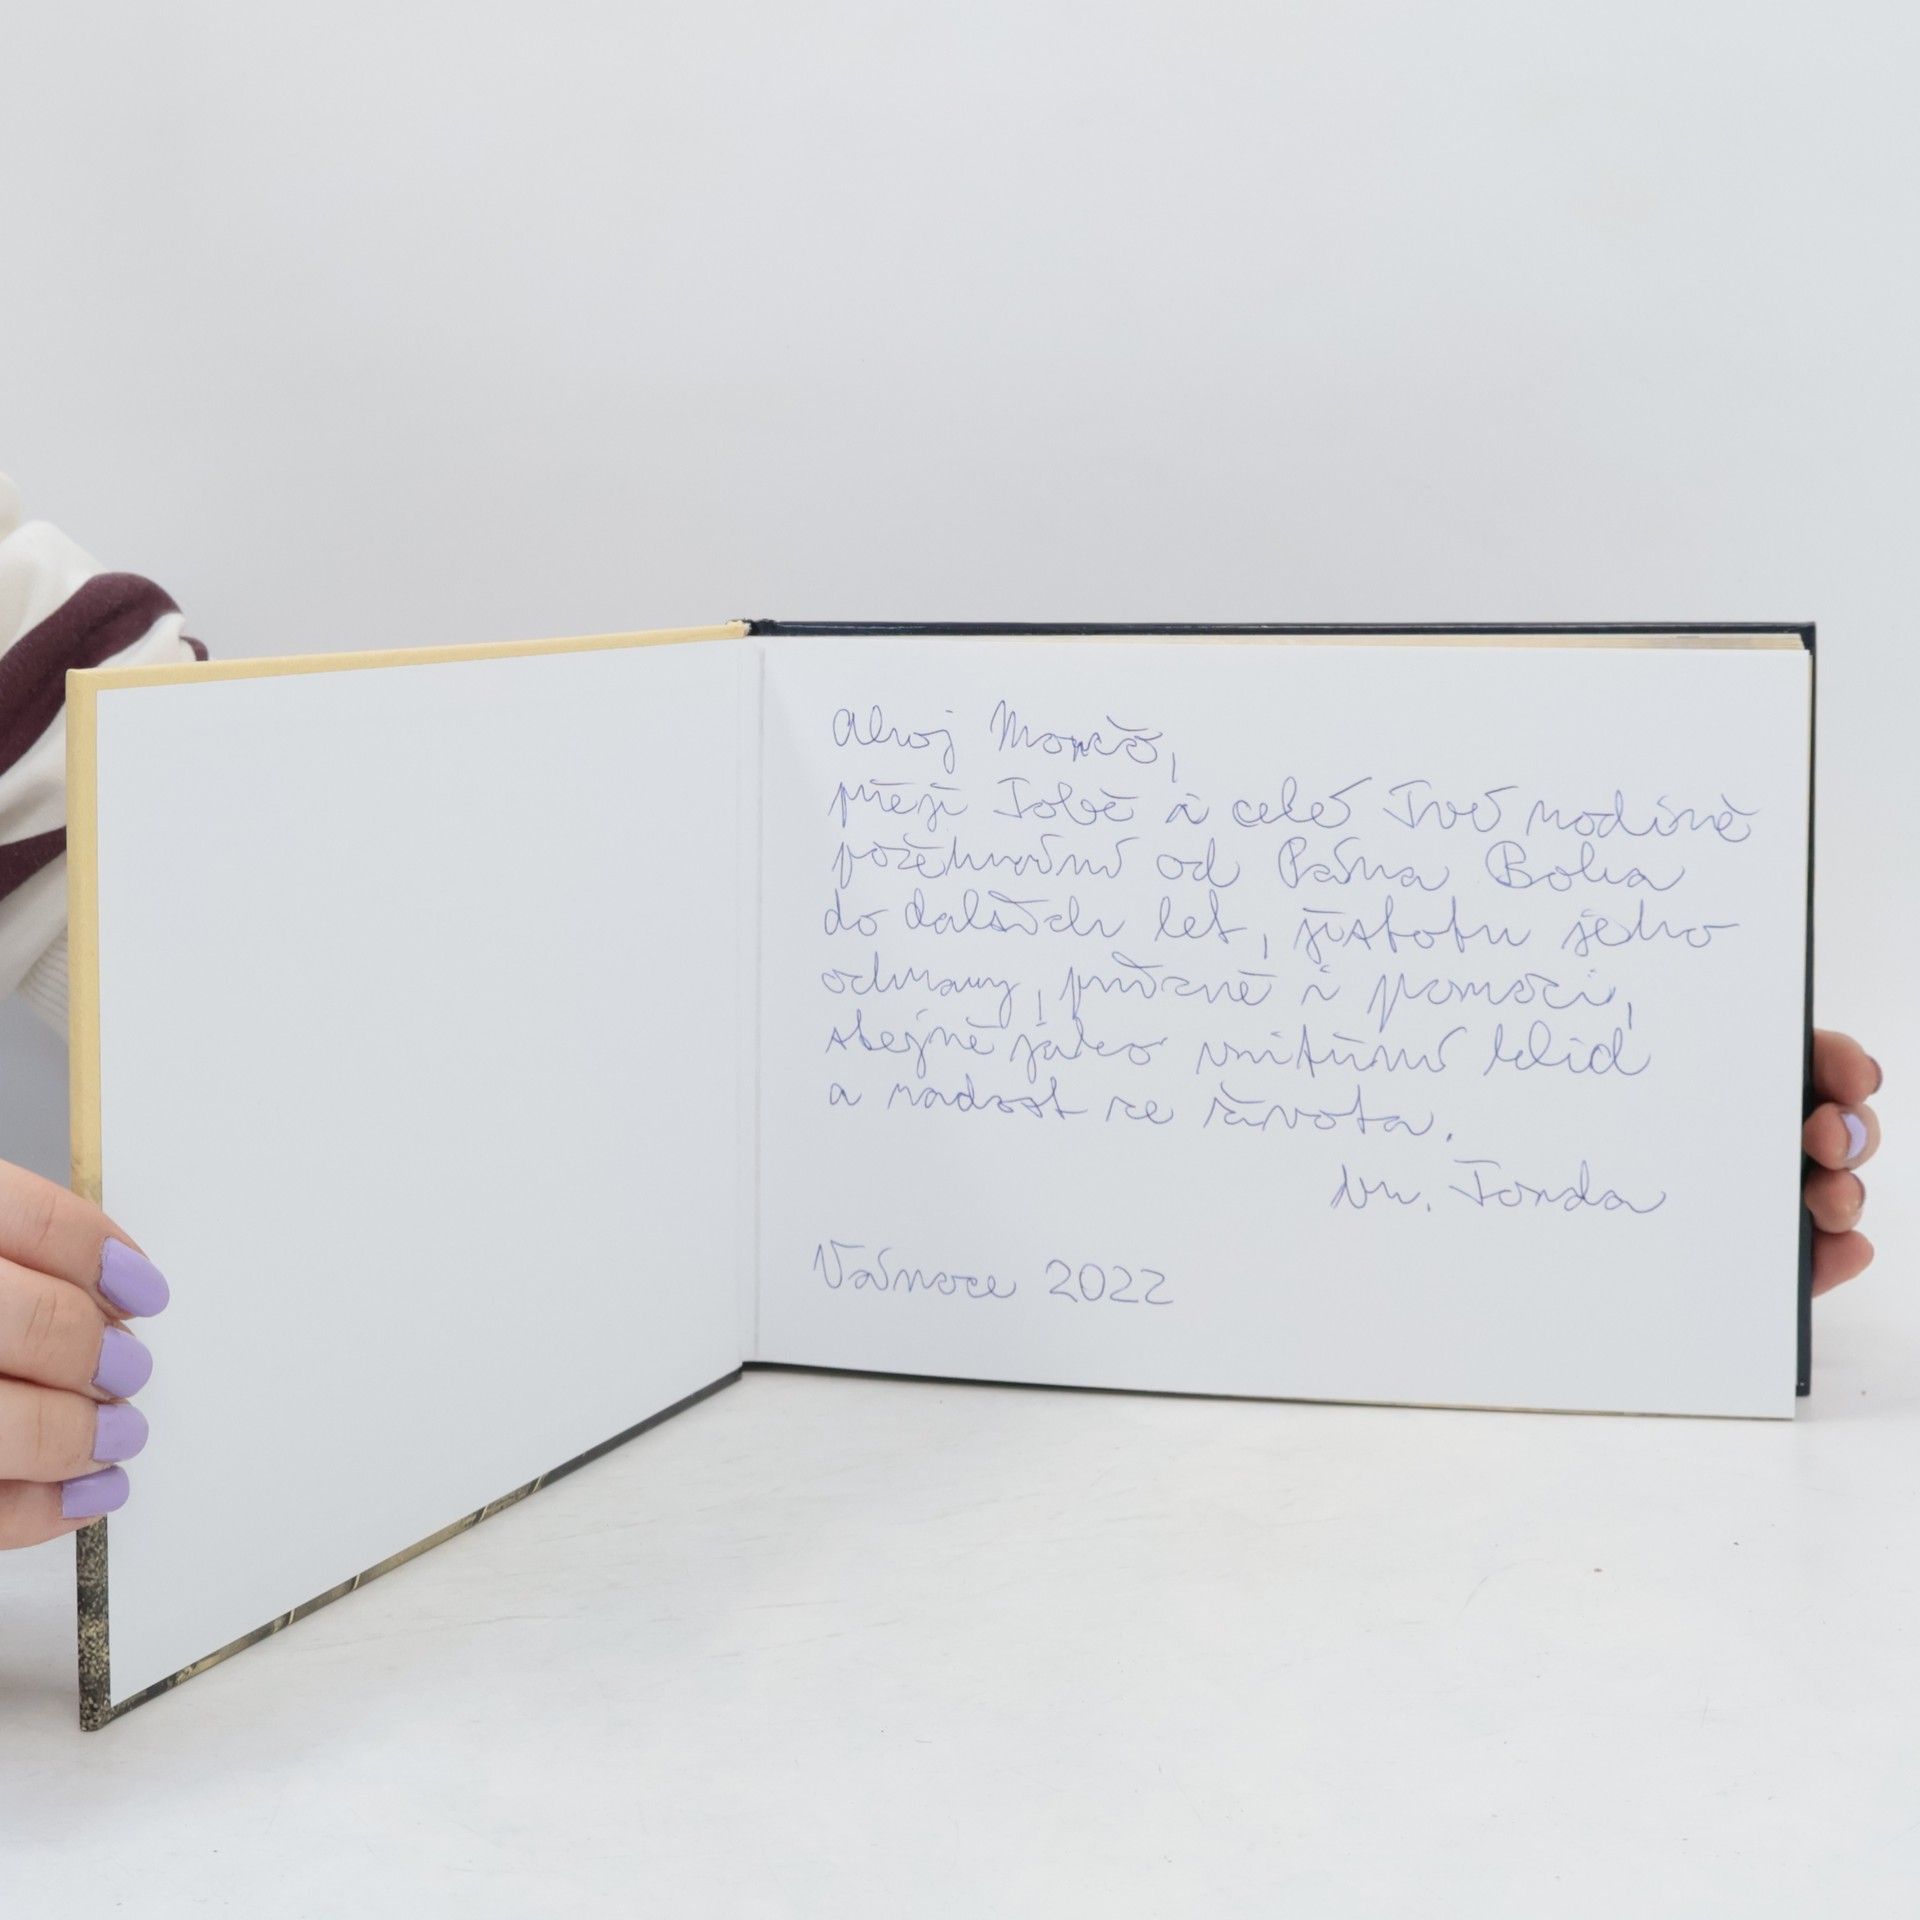 Ahoj
přeji Tobě i celé Tvé rodině
požehnání od Pána Boha
do dalších let, jistotu jeho
ochrany, přízně i pomoci,
stejně jako vnitřní klid
a radost ze života.
Tonda
Vánoce 2022